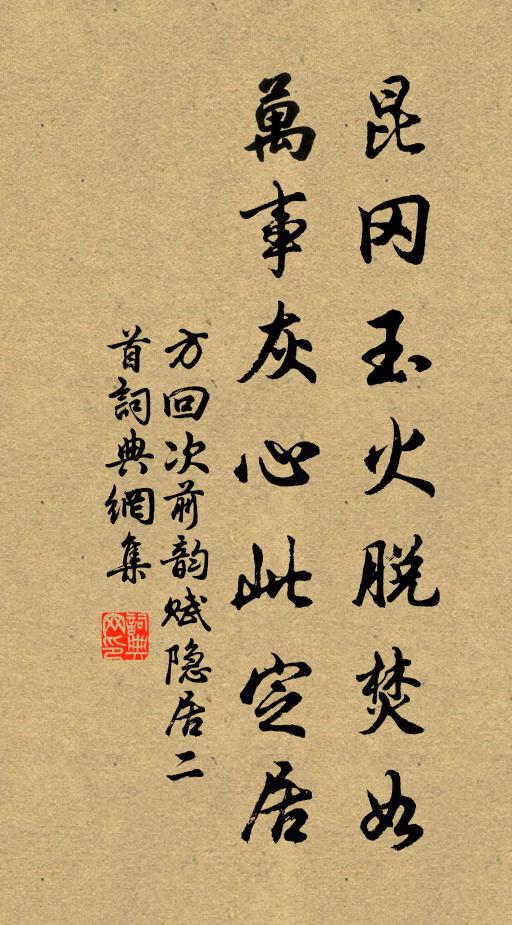 昆冈玉火脱焚如
萬事灰心此定居
方回次前韵赋隐居二
首詞典網集
詞典網印